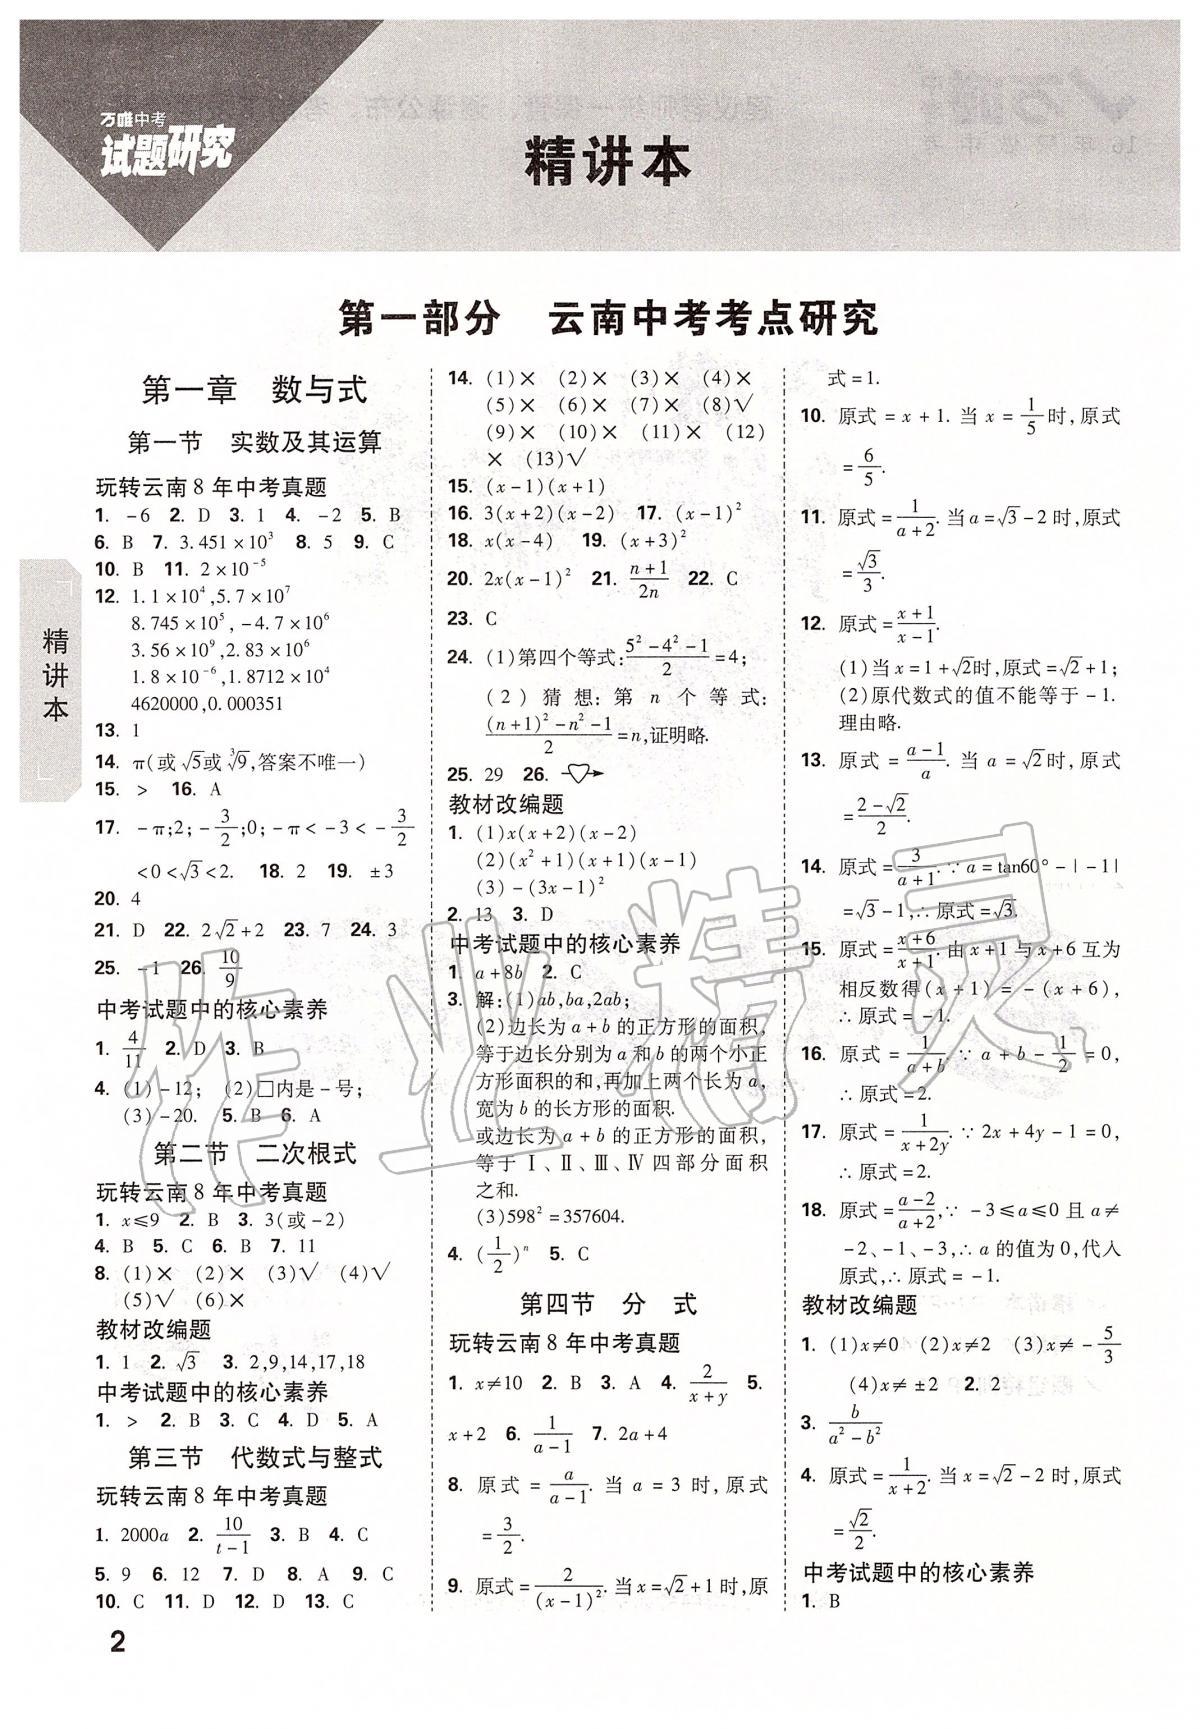 万唯中考
试题研究
精讲本
第一部分 云南中考考点研究
精讲本
第一章 数与式
第一节 实数及其运算
玩转云南8年中考真题
1. -6 2. D 3. 1 4. -2 5. B
6. B 7. 3.451×10³ 8. 5 9. C
10. B 11. 2×10⁻⁵
12. 1.1×10⁴,5.7×10⁷
8.745×10⁵,-4.7×10⁶
3.56×10⁹,2.83×10⁶
1.8×10⁻⁶,1.8712×10⁴
4620000,0.000351
13. 1
14. π(或√5或³√9,答案不唯一)
15. > 16. A
17. -π;2;-3/2;0;-π<-3<-3/2
<0<√3<2. 18. 2 19. ±3
20. 4
21. D 22. 2√2+2 23. 7 24. 3
25. -1 26. 10/9
中考试题中的核心素养
1. 4/11 2. D 3. B
4. (1)-12; (2)□内是-号;
(3)-20. 5. B 6. A
第二节 二次根式
玩转云南8年中考真题
1. x≤9 2. B 3. 3(或-2)
4. B 5. C 6. B 7. 11
8. (1)× (2)× (3)√ (4)√
(5)√ (6)×
教材改编题
1. 1 2. √3 3. 2,9,14,17,18
中考试题中的核心素养
1. > 2. B 3. C 4. D 5. A
第三节 代数式与整式
玩转云南8年中考真题
1. 2000a 2. 10/(t-1) 3. B 4. C
5. 9 6. 12 7. D 8. A 9. C
10. C 11. D 12. D 13. C
14. (1)× (2)× (3)× (4)×
(5)× (6)× (7)× (8)√
(9)× (10)× (11)× (12)
× (13)√
15. (x-1)(x+1)
16. 3(x+2)(x-2) 17. (x-1)²
18. x(x-4) 19. (x+3)²
20. 2x(x-1)² 21. (n+1)/2n 22. C
23. C
24. (1)第四个等式:(5²-4²-1)/2=4;
(2)猜想:第n个等式:
((n+1)²-n²-1)/2=n,证明略.
25. 29 26.
教材改编题
1. (1)x(x+2)(x-2)
(2)(x²+1)(x+1)(x-1)
(3)-(3x-1)²
2. 13 3. D
中考试题中的核心素养
1. a+8b 2. C
3. 解:(1)ab,ba,2ab;
(2)边长为a+b的正方形的面积,
等于边长分别为a和b的两个小正
方形面积的和,再加上两个长为a,
宽为b的长方形的面积.
或边长为a+b的正方形的面积,
等于Ⅰ、Ⅱ、Ⅲ、Ⅳ四部分面积
之和.
(3)598²=357604.
4. (1/2)ⁿ 5. C
第四节 分 式
玩转云南8年中考真题
1. x≠10 2. B 3. A 4. 2/(x+y) 5.
x+2 6. 1/(a-1) 7. 2a+4
8. 原式=a/(a-1).当a=3时,原式
=3/2.
9. 原式=2/(x-1)².当x=√2+1时,原
式=1.
10. 原式=x+1.当x=1/5时,原式
=6/5.
11. 原式=1/(a+2).当a=√3-2时,原式
=√3/3.
12. 原式=(x+1)/(x-1).
(1)当x=1+√2时,原式=√2+1;
(2)原代数式的值不能等于-1.
理由略.
13. 原式=(a-1)/a.当a=√2时,原式
=(2-√2)/2.
14. 原式=3/(a+1).∵a=tan60°-|-1|
=√3-1,∴原式=√3.
15. 原式=(x+6)/(x+1).由x+1与x+6互为
相反数得(x+1)=-(x+6),
∴原式=-1.
16. 原式=1/(a+b).∵a+b-1/2=0,
∴原式=2.
17. 原式=1/(x+2y).∵2x+4y-1=0,
∴原式=2.
18. 原式=(a-2)/(a+2),∵-3≤a≤0且a≠
-2、-1、-3,∴a的值为0,代入
原式,∴原式=-1.
教材改编题
1. (1)x≠0 (2)x≠2 (3)x≠-5/3
(4)x≠±2 2. 2
3. b/(a²-b²)
4. 原式=1/(x+2).当x=√2-2时,原式
=√2/2.
中考试题中的核心素养
1. B
2
作业精灵